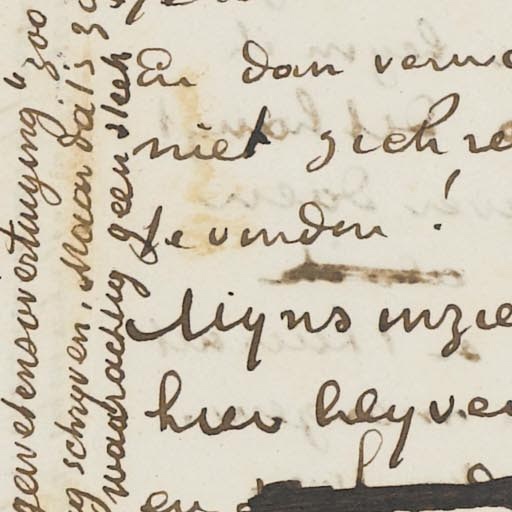 En dan verwo
niet zich re
te vinden!
Mijns inzie
hier blyven
en
gewetensovertuiging "zoo
g schryven, Maar dat is zo
waarachtig geen steek